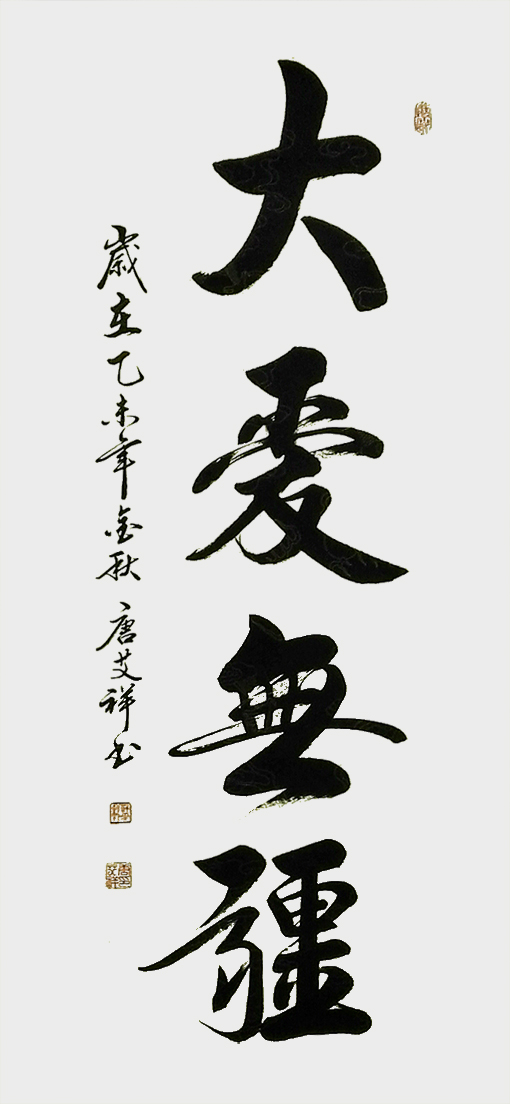 大愛無疆
歲在乙未年金秋 唐艾祥书